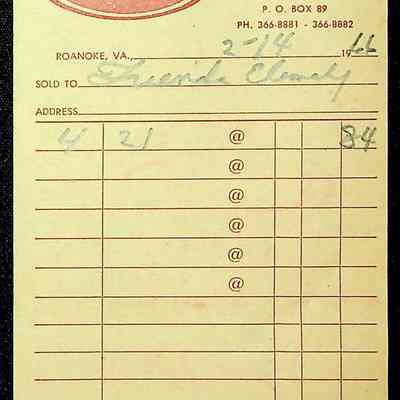 P. O. BOX 89
PH. 366-8881 - 366-8882
ROANOKE, VA., 2-14 1966
SOLD TO
ADDRESS
4 21 @ 84
@
@
@
@
@